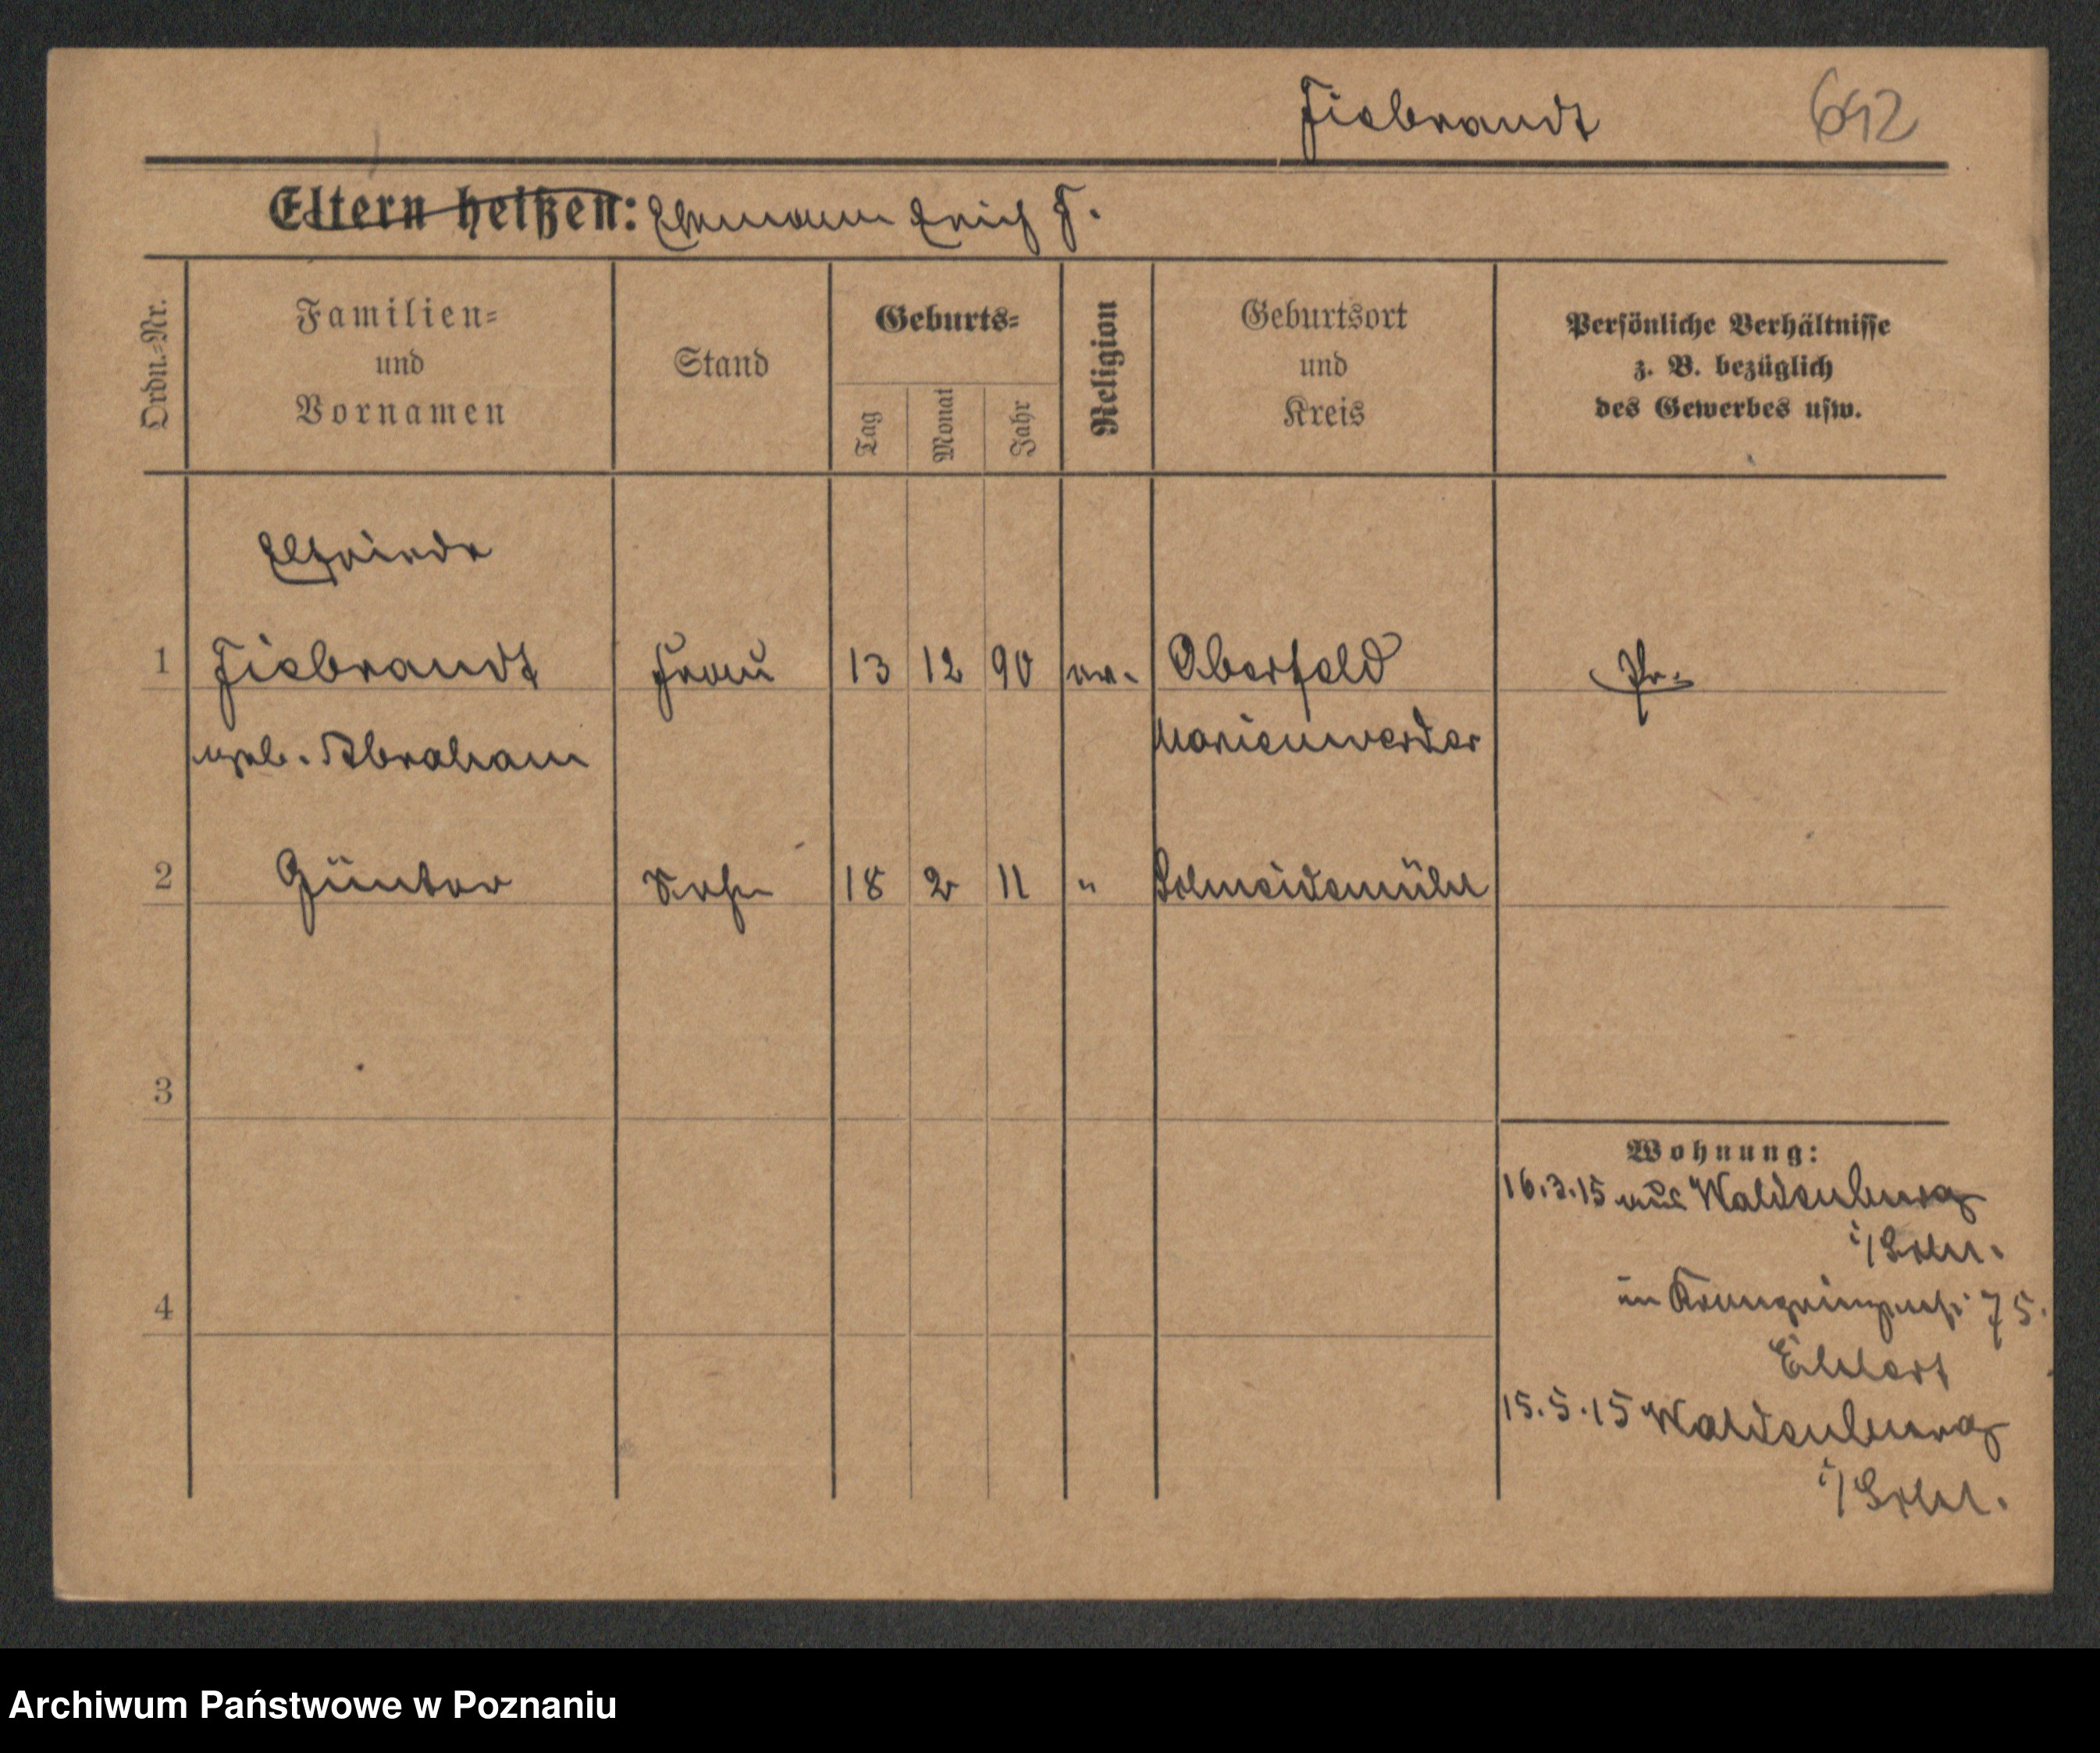 Fiebrandt 692
Eltern heißen: Ehemann Erich F.
Ordn.-Nr.
Familien-
und
Vornamen
Stand
Geburts-
Tag
Monat
Jahr
Religion
Geburtsort
und
Kreis
Persönliche Verhältnisse
z. B. bezüglich
des Gewerbes usw.
Elfriede
1 Fiebrandt Frau 13 12 90 ev. Oberfeld Pr.
geb. Abraham Marienwerder
2 Günter Sohn 18 2 11 " Schneidemühl
3
Wohnung:
16.3.15 aus Waldenburg
i/Schl.
4
in Kronprinzenstr. 75.
Ehlert
15.5.15 Waldenburg
i/Schl.
Archiwum Państwowe w Poznaniu